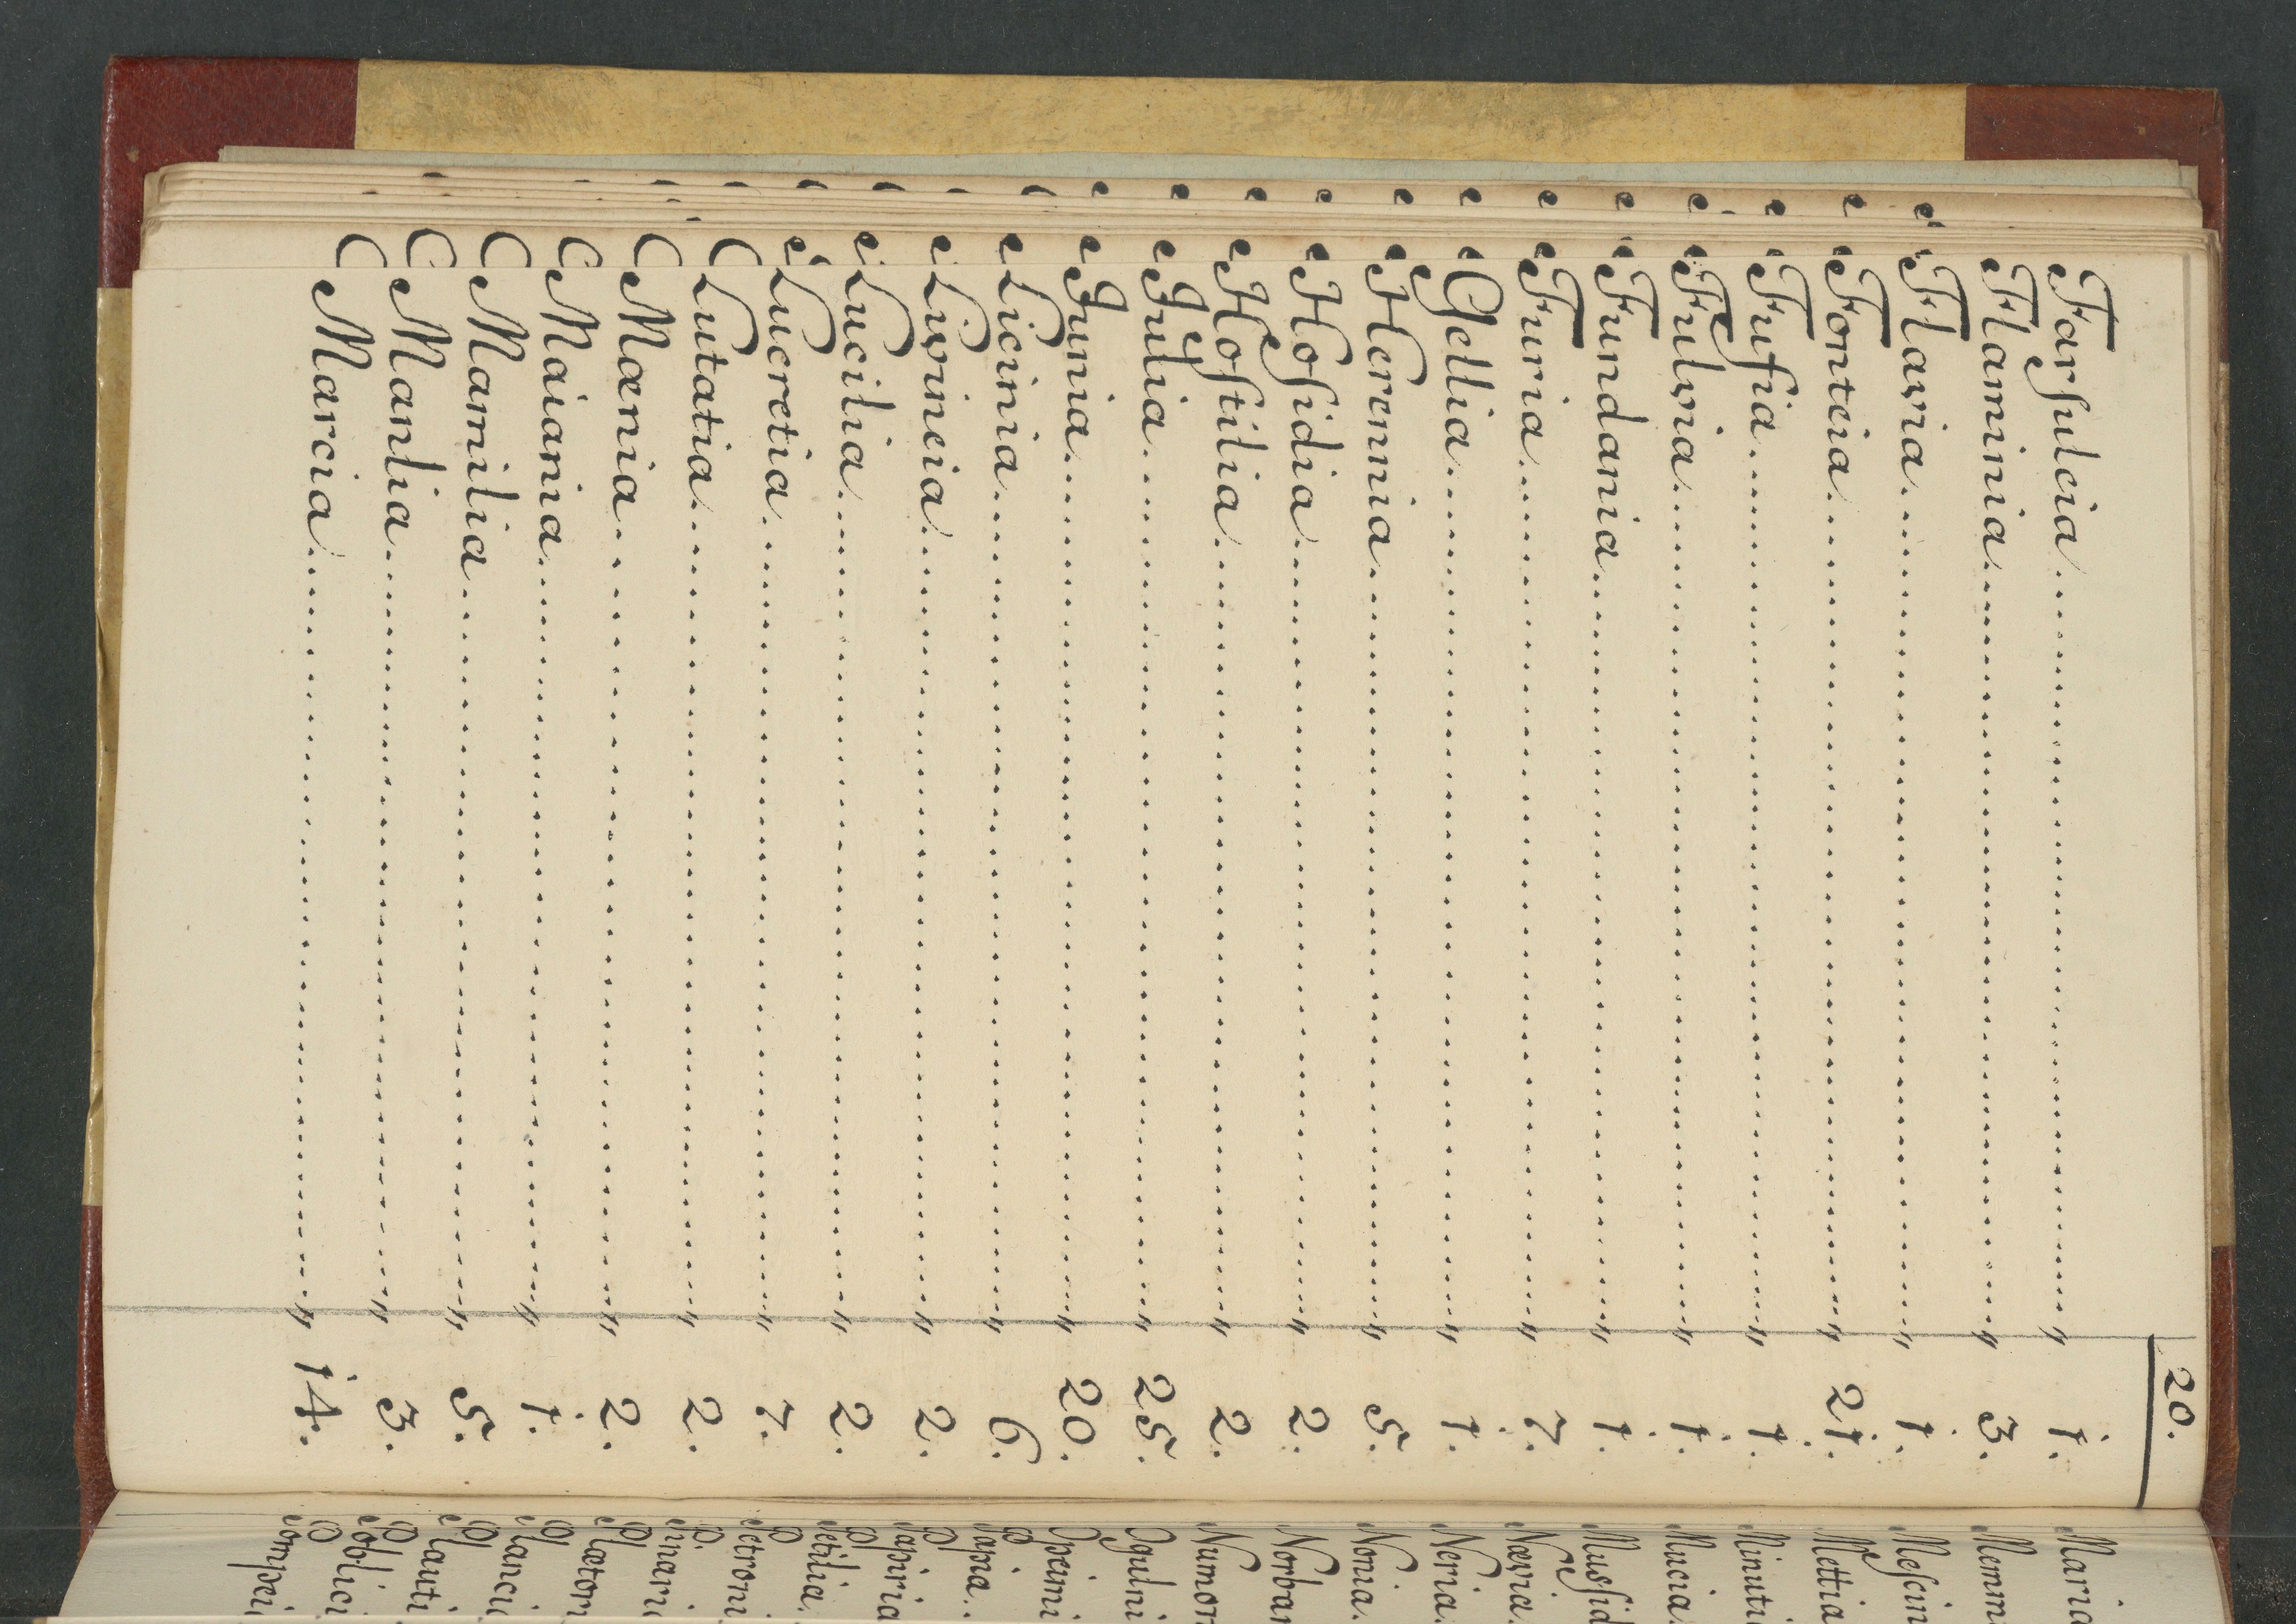 20.
Farſuleia " 1.
Flaminia " 3.
Flavia " 1.
Fonteia " 21.
Fufia " 1.
Fulvia " 1.
Fundania " 1.
Furia " 7.
Gellia " 1.
Herennia " 5.
Hoſidia " 2.
Hoſtilia " 2.
Julia " 25.
Junia " 20.
Licinia " 6.
Livineia " 2.
Lucilia " 2.
Lucretia " 7.
Lutatia " 2.
Mænia " 2.
Maiania " 1.
Mamilia " 5.
Manlia " 3.
Marcia " 14.
Maria
Memm
Meſcin
Mettia
Minuti
Mucia
Muſsid
Nævia
Neria
Nonia
Norban
Numon
Ogulni
Opeimi
Papia
Papiria
Petilia
Petroni
Pinari
Plætori
Planci
Plauti
Poblici
Pompei